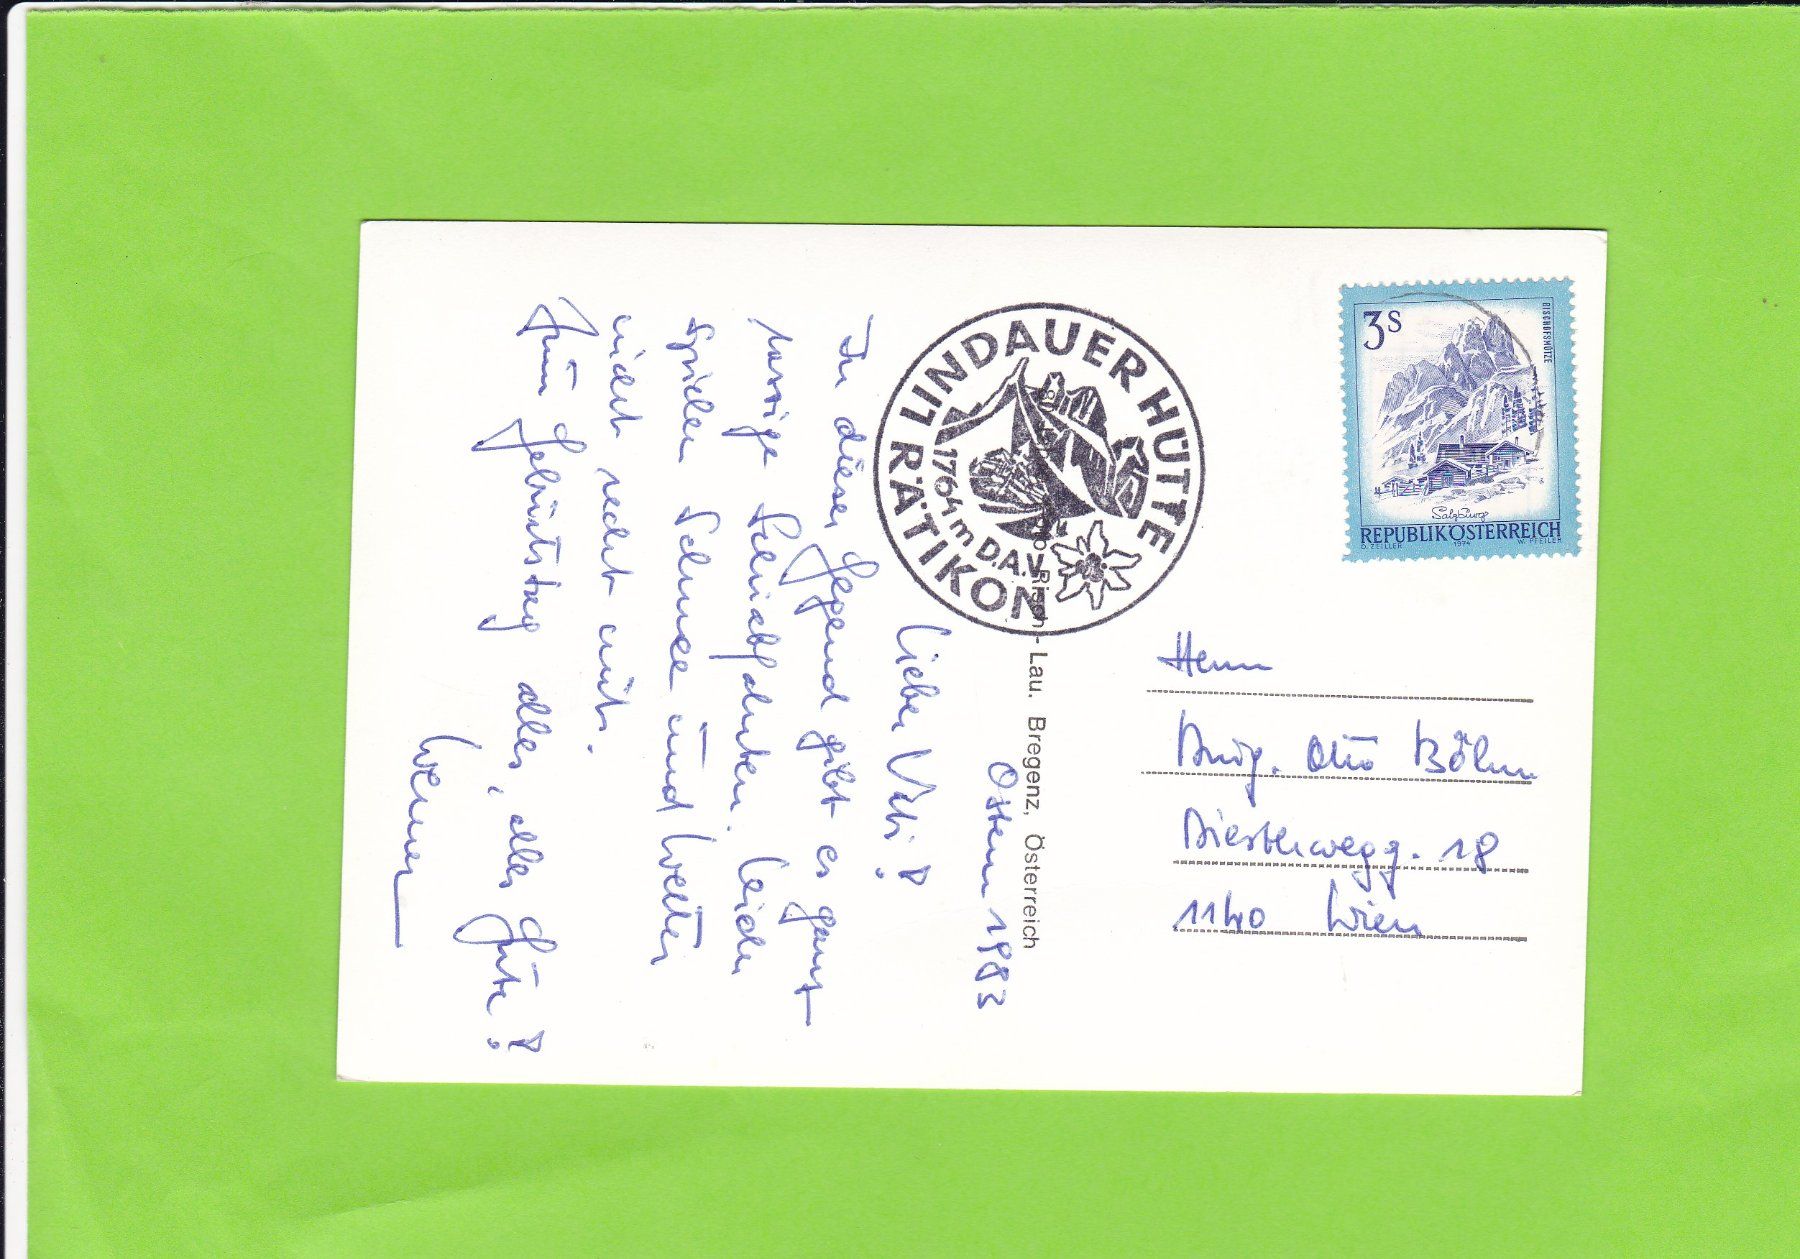 Ostern 1983
Lieber Vati!
In dieser Gegend gibt es ganz
rassige Schiabfahrten. Leider
spielen Schnee und Wetter
nicht recht mit.
Zum Geburtstag alles, alles Gute!
Werner
LINDAUER HÜTTE
1764 m D.A.V.
RÄTIKON
Risch-Lau, Bregenz, Österreich
3S
BISCHOFSMÜTZE
Salzburg
REPUBLIK ÖSTERREICH
D. ZEILLER 1974 W. PFEILER
Herrn
Otto Böhm
Diesterwegg. 18
1140 Wien